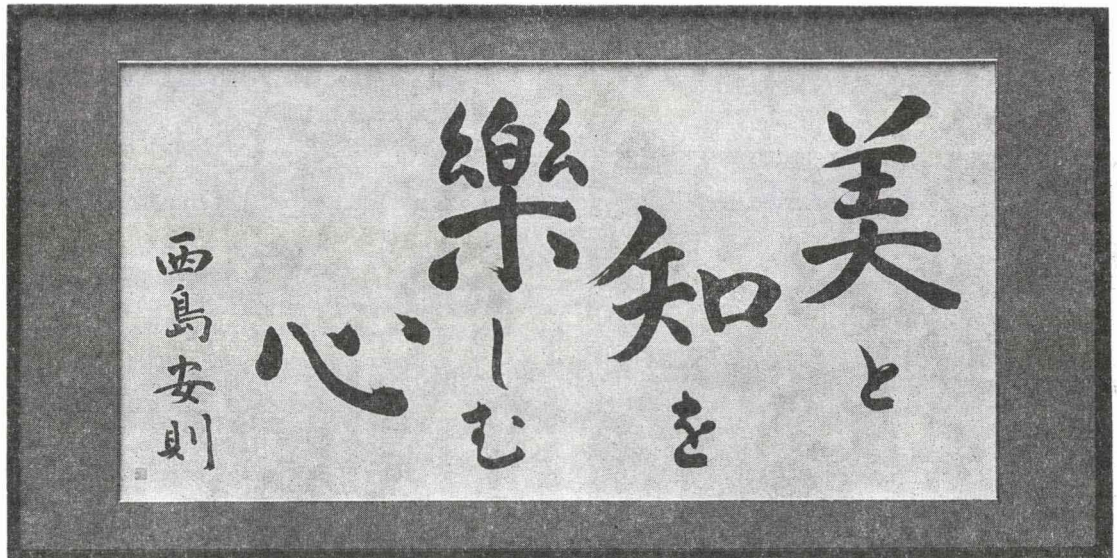 美と
知を
樂しむ
心
西島安則